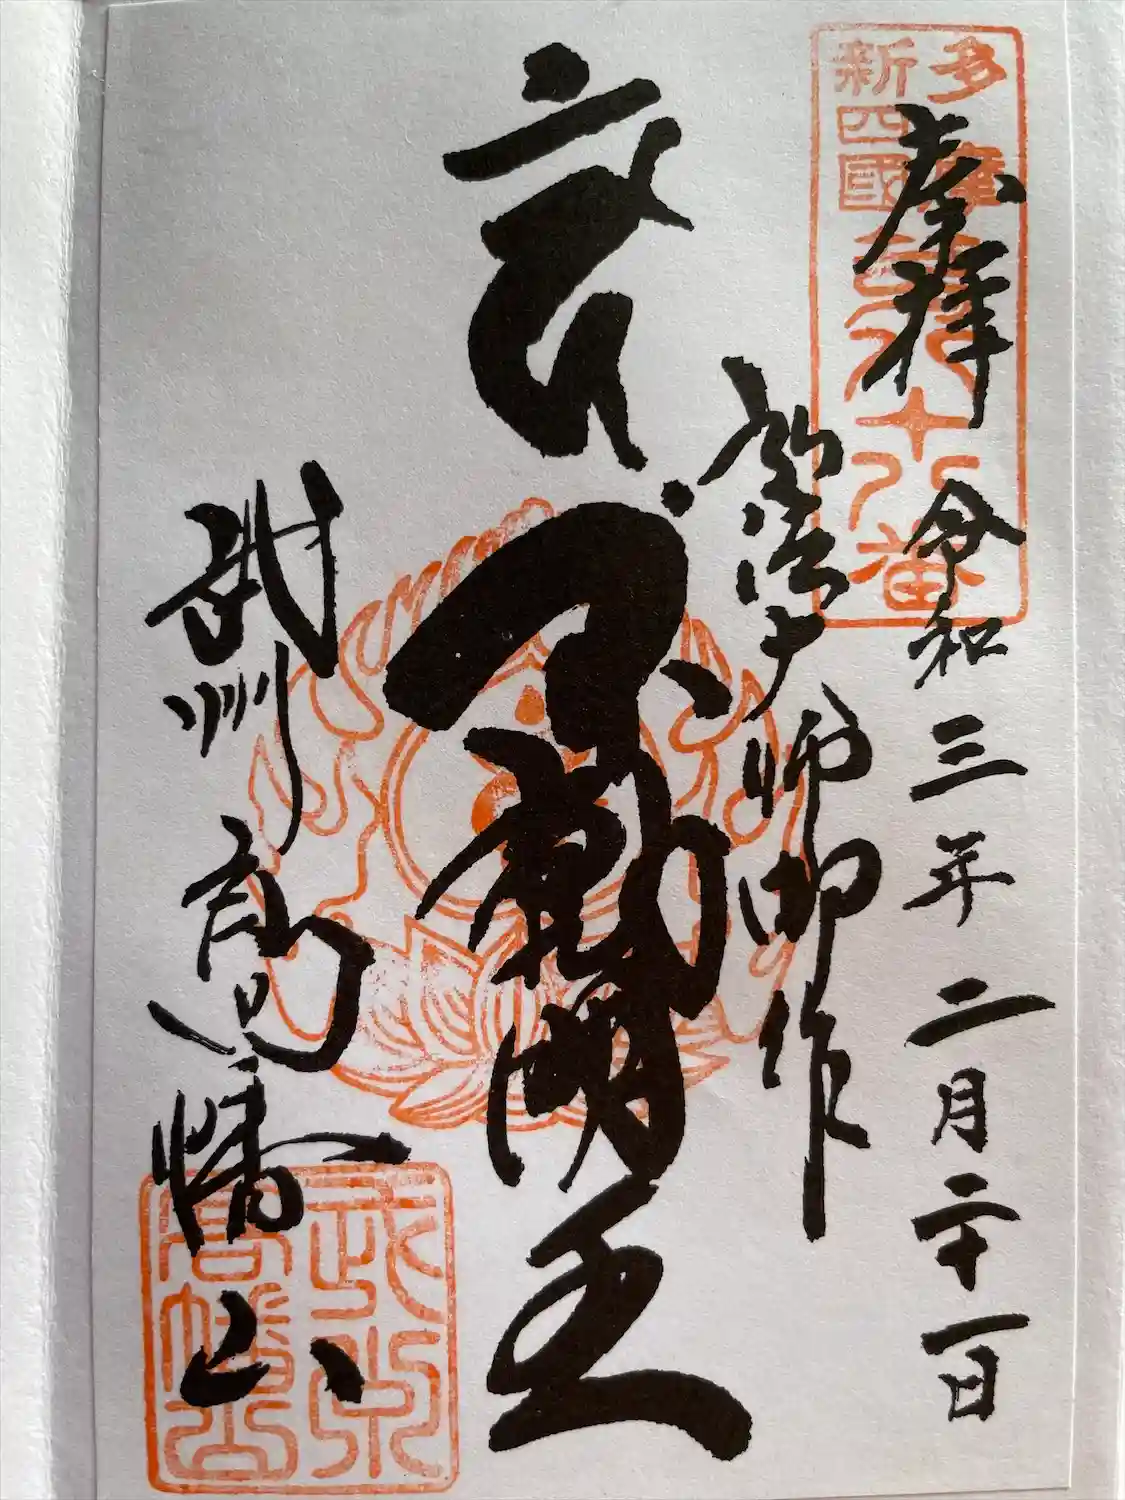 多摩
新四國
第八十八番
奉拝
令和三年二月二十一日
法大師御作
不動明王
武州高幡山
武州
高幡山